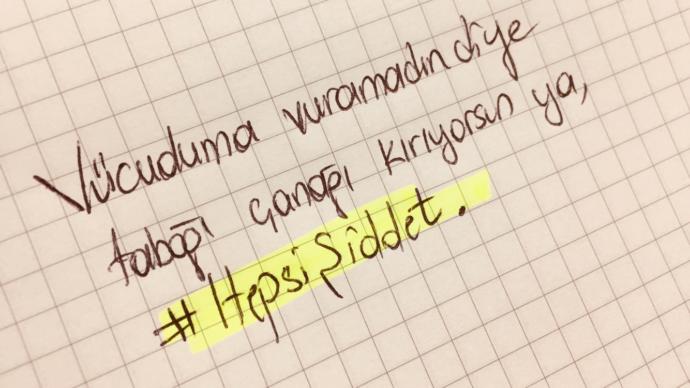 Vücuduma vuramadın diye
tabağı çanağı kırıyorsun ya,
#HepsiŞiddet.